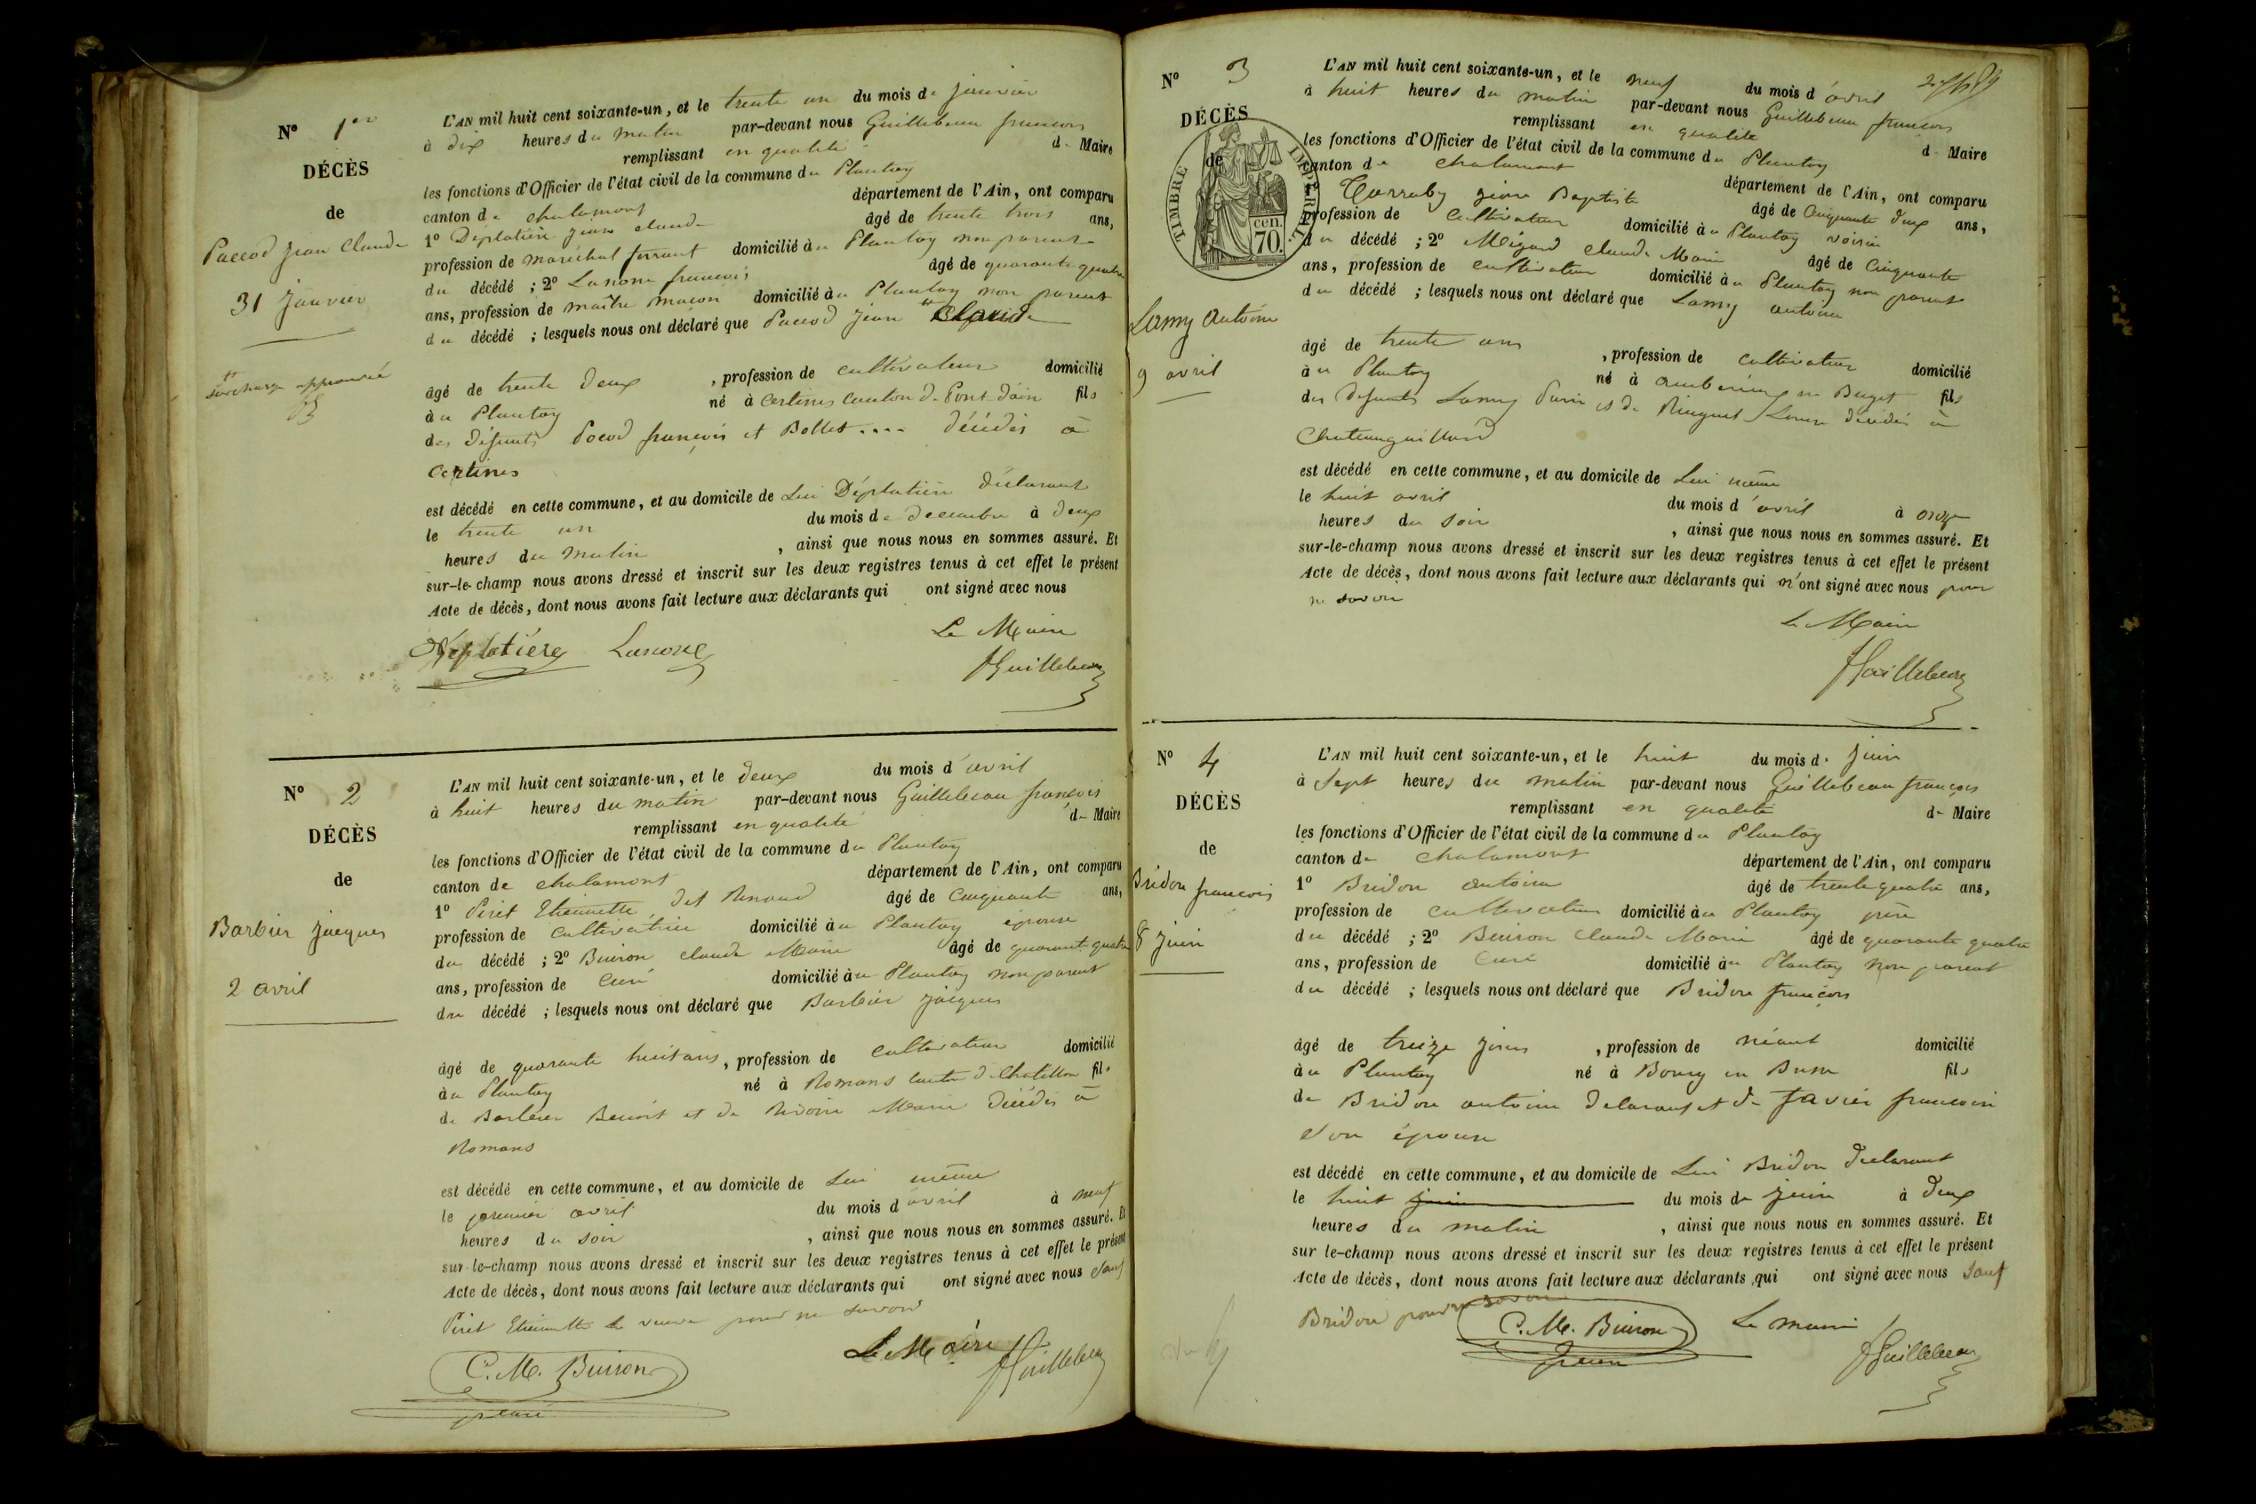 N° 1er
DÉCÈS
de
Paccod jean Claude
31 janvier
surcharge approuvée
L'AN mil huit cent soixante-un, et le trente un du mois de janvier
à dix heures du matin par-devant nous Guillebeau francois
remplissant en qualité de Maire
les fonctions d'Officier de l'état civil de la commune du Plantay
canton de chalamont département de l'Ain, ont comparu
1° Déplatière jean claude âgé de trente trois ans,
profession de maréchal ferrant domicilié au Plantay non parent
du décédé ; 2° Lanone francois âgé de quarante quatre
ans, profession de maître maçon domicilié au Plantay non parent
du décédé ; lesquels nous ont déclaré que Paccod jean Claude
âgé de trente deux , profession de cultivateur domicilié
au Plantay né à Certines canton de Pont d'ain fils
des défunts Pocod françois et Bollet .... décédés à
Certines
est décédé en cette commune, et au domicile de Lui Déplatière déclarant
le trente un du mois de decembre à deux
heures du matin , ainsi que nous nous en sommes assuré. Et
sur-le-champ nous avons dressé et inscrit sur les deux registres tenus à cet effet le présent
Acte de décès, dont nous avons fait lecture aux déclarants qui ont signé avec nous
Le Maire
Déplatière Lanone
fGuillebeau
N° 2
DÉCÈS
de
Barbier jacques
2 avril
L'AN mil huit cent soixante-un, et le deux du mois d'avril
à huit heures du matin par-devant nous Guillebeau françois
remplissant en qualité de Maire
les fonctions d'Officier de l'état civil de la commune du Plantay
canton de chalamont département de l'Ain, ont comparu
1° Piret Etiennette dit Renaud âgé de cinquante ans,
profession de cultivatrice domicilié au Plantay épouse
du décédé ; 2° Buiron claude Marie âgé de quarante quatre
ans, profession de Curé domicilié au Plantay non parent
du décédé ; lesquels nous ont déclaré que Barbier jacques
âgé de quarante huit ans, profession de cultivateur domicilié
au Plantay né à Romans canton de Chatillon fils
de Barbier Benoit et de Marie décédés à
Romans
est décédé en cette commune, et au domicile de Lui même
le premier avril du mois d'avril à neuf
heures du soir , ainsi que nous nous en sommes assuré. Et
sur-le-champ nous avons dressé et inscrit sur les deux registres tenus à cet effet le présent
Acte de décès, dont nous avons fait lecture aux déclarants qui ont signé avec nous sauf
Piret Etiennette la veuve pour ne savoir
Le Maire
C. M. Buiron
curé
fGuillebeau
N° 3
DÉCÈS
de
TIMBRE IMPÉRIAL
70 cen.
Lamy Antoine
9 avril
L'AN mil huit cent soixante-un, et le neuf du mois d'avril
à huit heures du matin par-devant nous Guillebeau francois
remplissant en qualité de Maire
les fonctions d'Officier de l'état civil de la commune du Plantay
canton de chalamont département de l'Ain, ont comparu
Carraby jean Baptiste âgé de Cinquante deux ans,
profession de cultivateur domicilié au Plantay voisin
du décédé ; 2° Mégard claude Marie âgé de Cinquante
ans, profession de cultivateur domicilié au Plantay non parent
du décédé ; lesquels nous ont déclaré que Lamy antoine
âgé de trente ans , profession de cultivateur domicilié
au Plantay né à ambérieu en Buget fils
des défunts Lamy et de décédés à
Chateaugaillard
est décédé en cette commune, et au domicile de Lui même
le huit avril du mois d'avril à onze
heures du soir , ainsi que nous nous en sommes assuré. Et
sur-le-champ nous avons dressé et inscrit sur les deux registres tenus à cet effet le présent
Acte de décès, dont nous avons fait lecture aux déclarants qui n'ont signé avec nous pour
ne savoir
Le Maire
fGuillebeau
N° 4
DÉCÈS
de
Bridon francois
8 juin
L'AN mil huit cent soixante-un, et le huit du mois de juin
à Sept heures du matin par-devant nous Guillebeau françois
remplissant en qualité de Maire
les fonctions d'Officier de l'état civil de la commune du Plantay
canton de chalamont département de l'Ain, ont comparu
1° Bridon antoine âgé de trente quatre ans,
profession de cultivateur domicilié au Plantay père
du décédé ; 2° Buiron Claude Marie âgé de quarante quatre
ans, profession de Curé domicilié au Plantay non parent
du décédé ; lesquels nous ont déclaré que Bridon françois
âgé de treize jours , profession de néant domicilié
au Plantay né à Bourg en Bresse fils
de Bridon antoine déclarant et de Favier francoise
son épouse
est décédé en cette commune, et au domicile de Lui Bridon déclarant
le huit juin du mois de juin à deux
heures du matin , ainsi que nous nous en sommes assuré. Et
sur le-champ nous avons dressé et inscrit sur les deux registres tenus à cet effet le présent
Acte de décès, dont nous avons fait lecture aux déclarants qui ont signé avec nous sauf
Bridon pour ne savoir
C. M. Buiron Le maire
curé
fGuillebeau